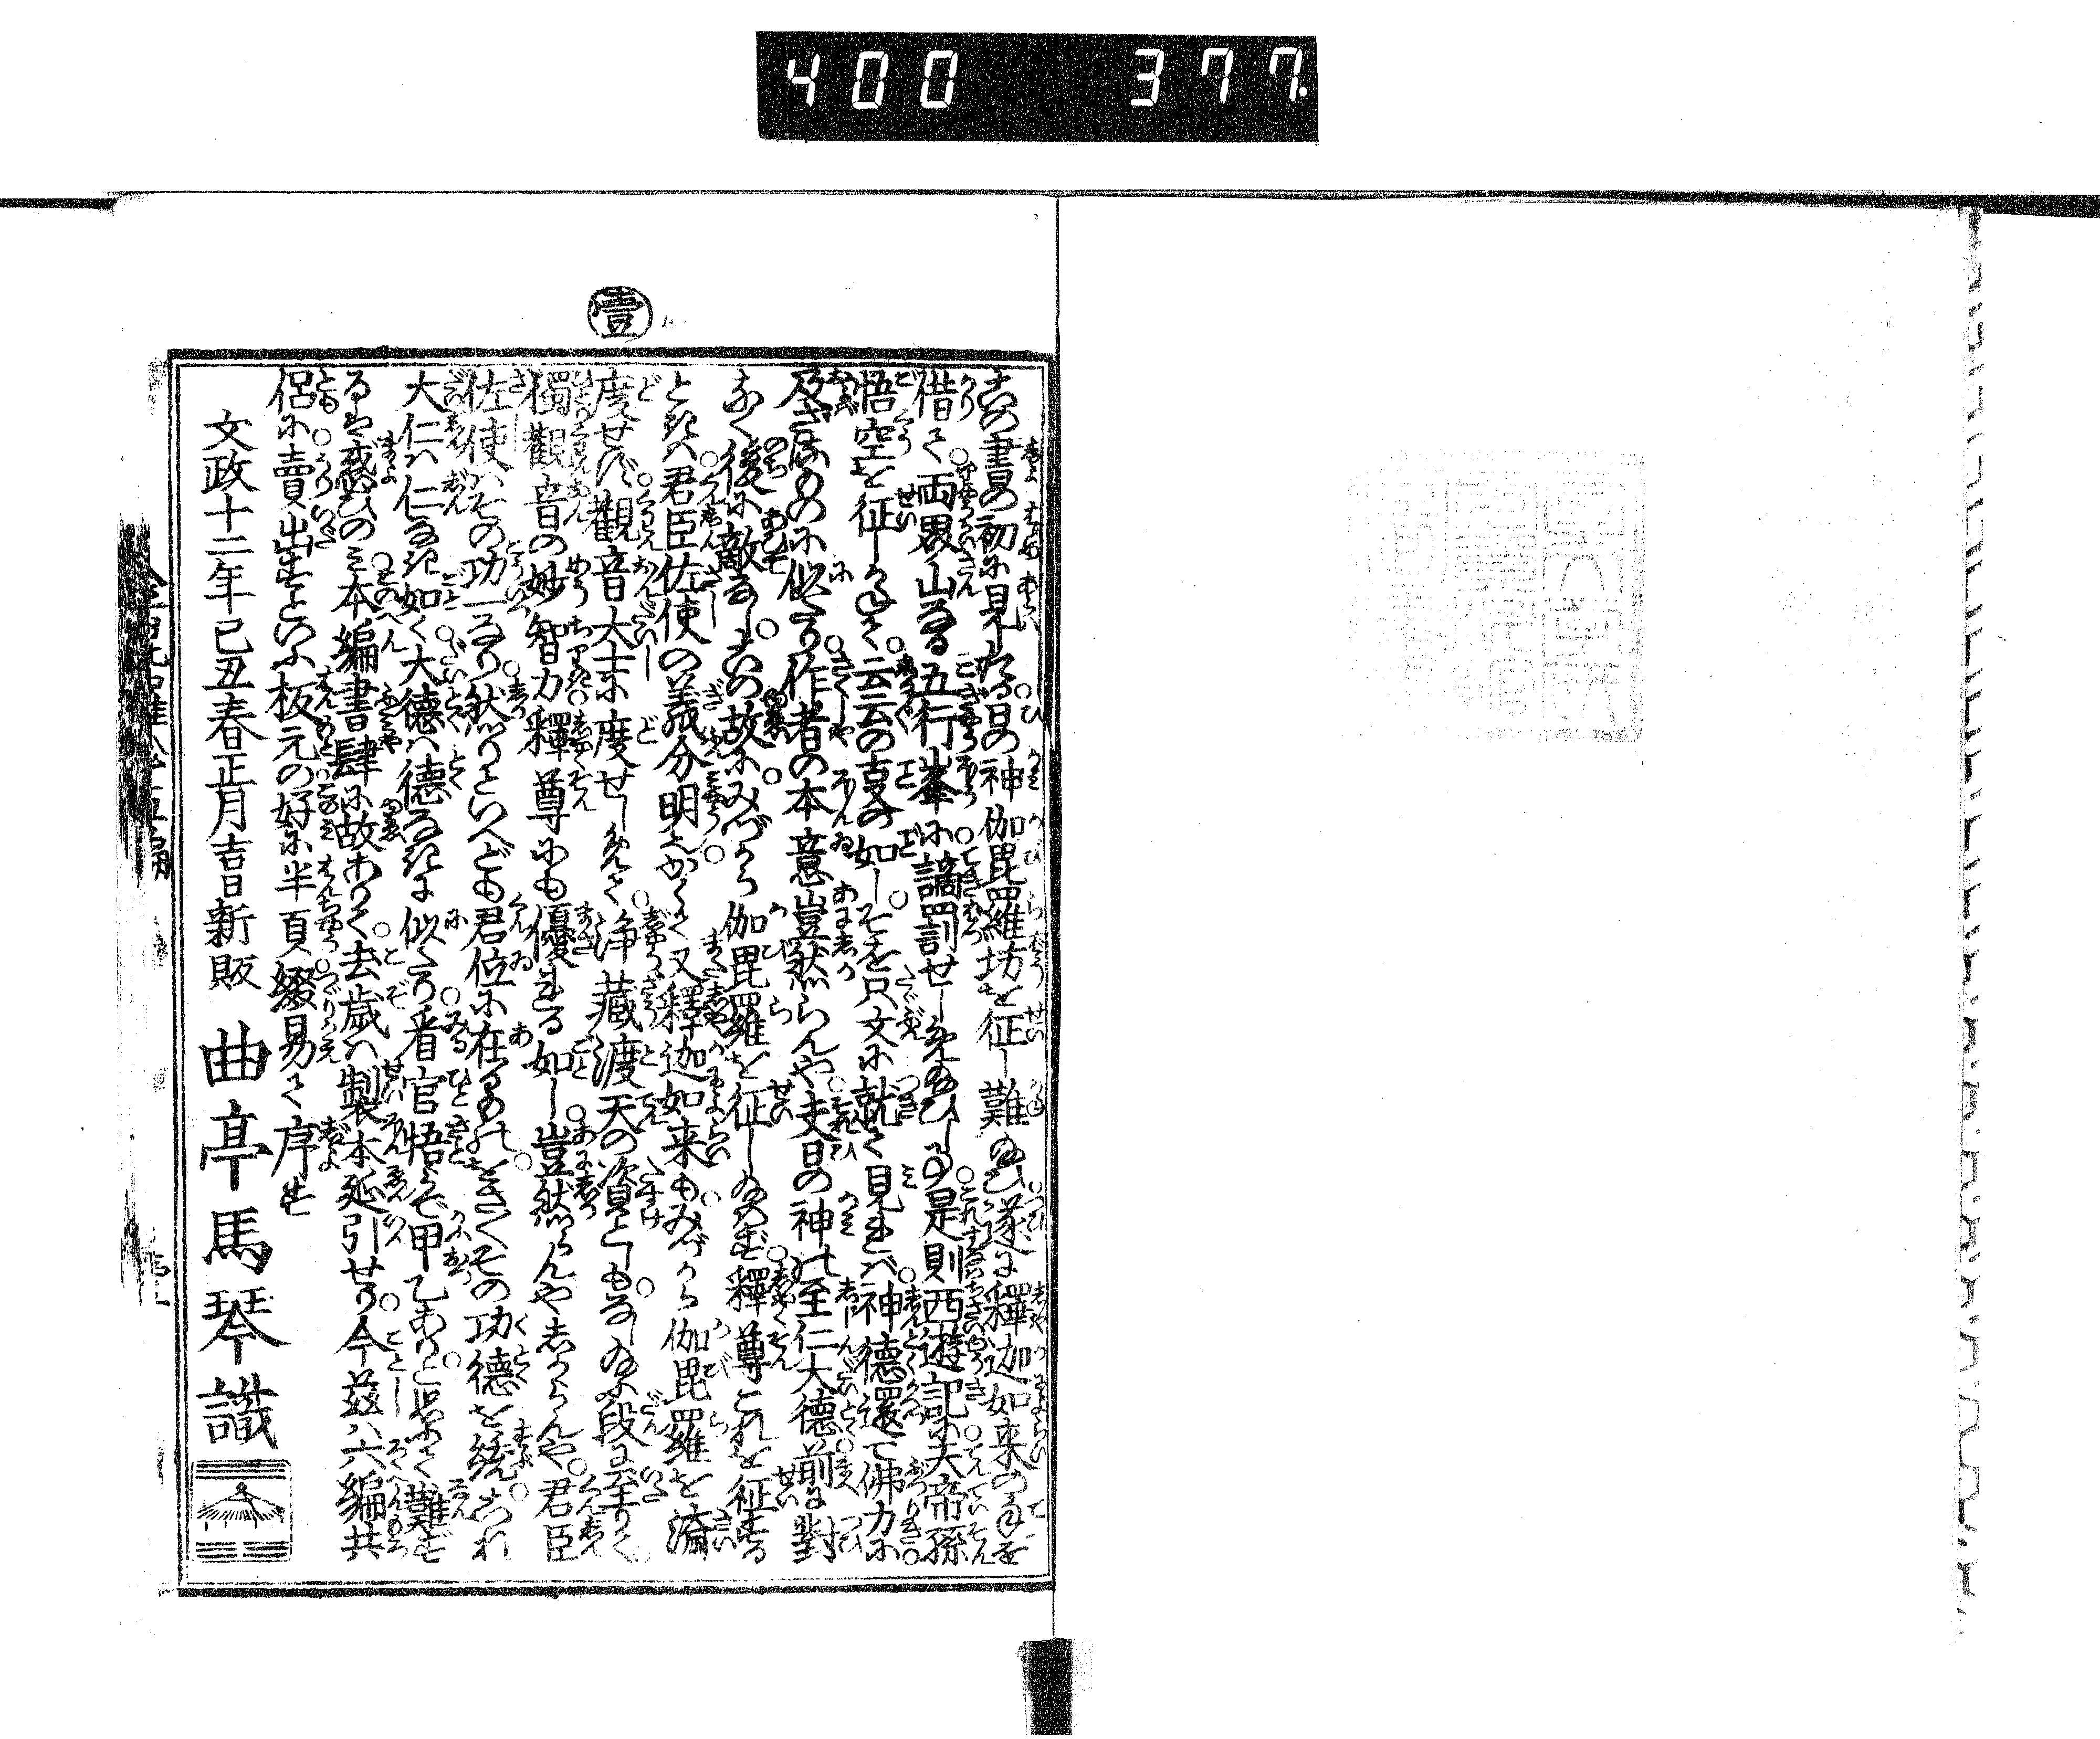 400 377.
壹
書の初に見れたる日の神伽毘羅坊を征し難給ひ遂に釋迦如来の手を
借て両畧山なる五行峯に謫罰せしめ給ひし事是則西遊記に天帝孫
悟空を征しかねて云云の事の如しそを只文に就て見れば神徳還て佛力に
及ざるものに似たり作者の本意豈然らんや夫日の神は至仁大徳前に對
なく後に敵なしこの故にみづから伽毘羅を征し給はず釋尊これを征する
ときは君臣佐使の義分明しかして又釋迦如来もみづから伽毘羅を濟
度せず觀音大士に度せしめて浄藏渡天の資としもなし給ふ段に至りて
獨觀音の妙智力釋尊にも優れる如し豈然らんやしからんや君臣
佐使はその功一なり然りといへども君位に在るものはなべてその功徳を統これ
大仁は仁なき如く大徳は徳なきに似たり看官悟らで甲乙ありと思ふて難ぜ
るは惑ひのみ本編書肆に故ありて去歳は製本延引せり今茲は六編共
侶に賣出すといふ板元の好に半頁綴易て序す
文政十二年己丑春正月吉日新販 曲亭馬琴識